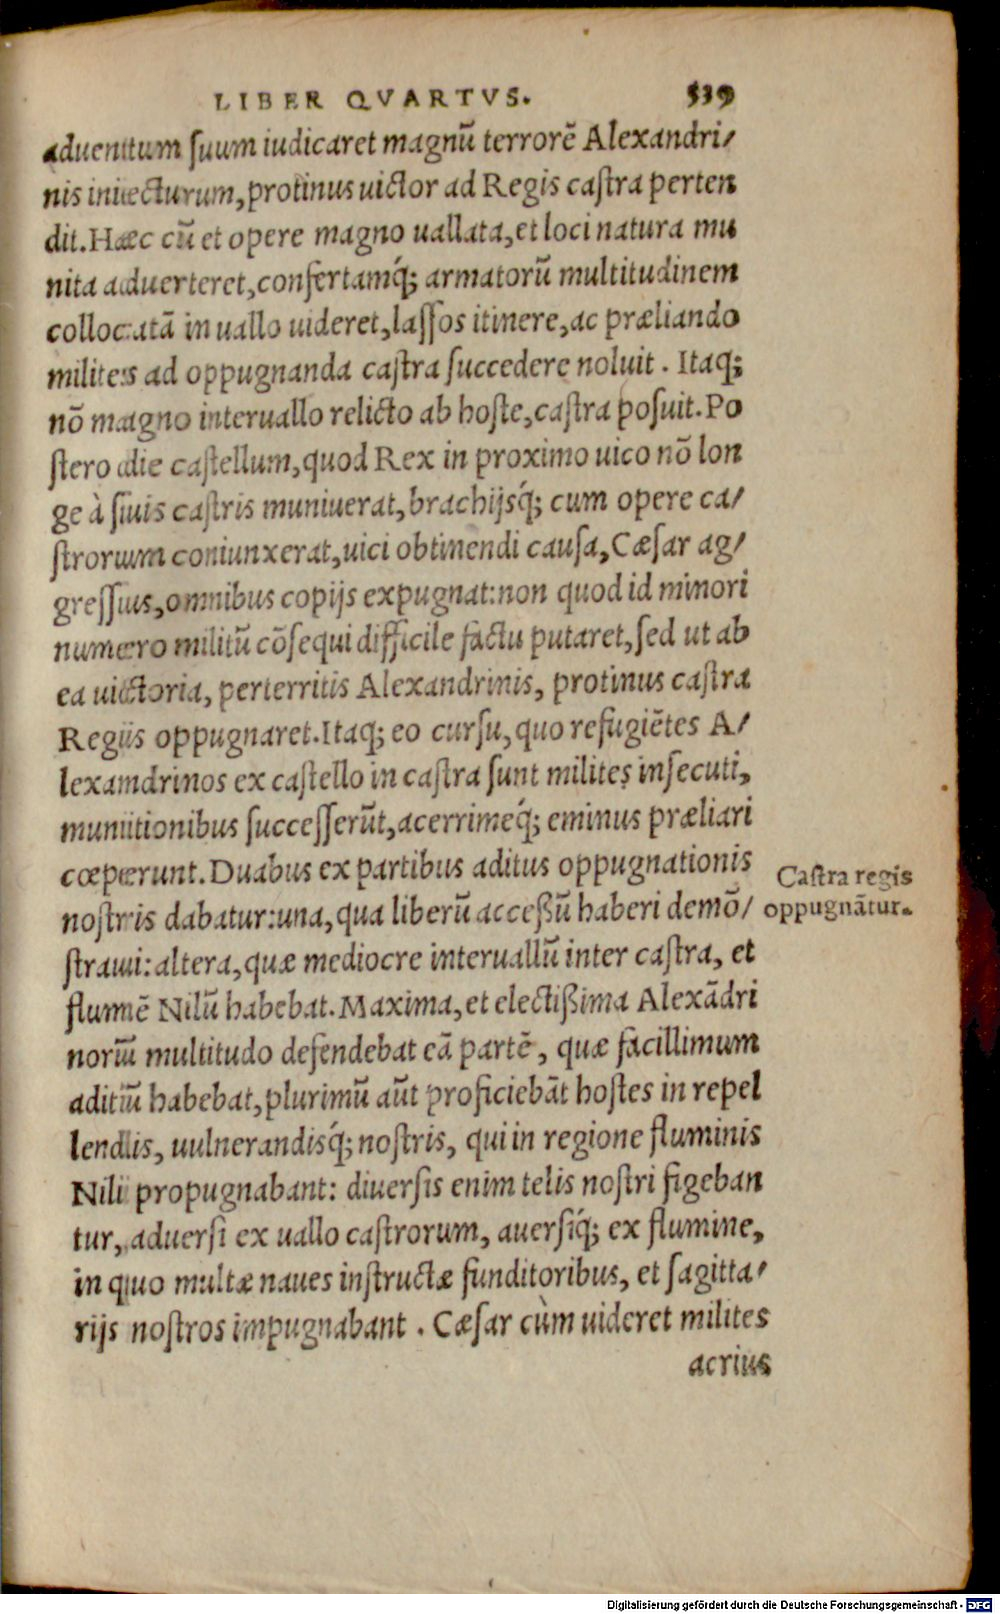 LIBER QVARTVS. 539
aduentum ſuum iudicaret magnũ terrorẽ Alexandri/
nis iniecturum, protinus uictor ad Regis caſtra perten
dit. Hæc cũ et opere magno uallata, et loci natura mu
nita aduerteret, confertamq́; armatorũ multitudinem
collocatã in uallo uideret, laſſos itinere, ac præliando
milites ad oppugnanda caſtra ſuccedere noluit. Itaq;
nõ magno interuallo relicto ab hoſte, caſtra poſuit. Po
ſtero die caſtellum, quod Rex in proximo uico nõ lon
ge à ſuis caſtris muniuerat, brachijsq́; cum opere ca/
ſtrorum coniunxerat, uici obtinendi cauſa, Cæſar ag/
greſſus, omnibus copijs expugnat: non quod id minori
numero militũ cõſequi difficile factu putaret, ſed ut ab
ea uictoria, perterritis Alexandrinis, protinus caſtra
Regis oppugnaret. Itaq; eo curſu, quo refugiẽtes A/
lexandrinos ex caſtello in caſtra ſunt milites inſecuti,
munitionibus ſucceſſerũt, acerrimeq́; eminus præliari
cœperunt. Duabus ex partibus aditus oppugnationis
nostris dabatur: una, qua liberũ acceßũ haberi demõ/
ſtraui: altera, quæ mediocre interuallũ inter caſtra, et
flumẽ Nilũ habebat. Maxima, et electißima Alexãdri
norũ multitudo defendebat eã partẽ, quæ facillimum
aditũ habebat, plurimũ aũt proficiebãt hoſtes in repel
lendis, uulnerandisq́; noſtris, qui in regione fluminis
Nili propugnabant: diuerſis enim telis noſtri figeban
tur, aduerſi ex uallo caſtrorum, auerſiq́; ex flumine,
in quo multæ naues inſtructæ funditoribus, et ſagitta/
rijs noſtros impugnabant. Cæſar cùm uideret milites
acrius
Caſtra regis
oppugnãtur.
Digitalisierung gefördert durch die Deutsche Forschungsgemeinschaft - DFG